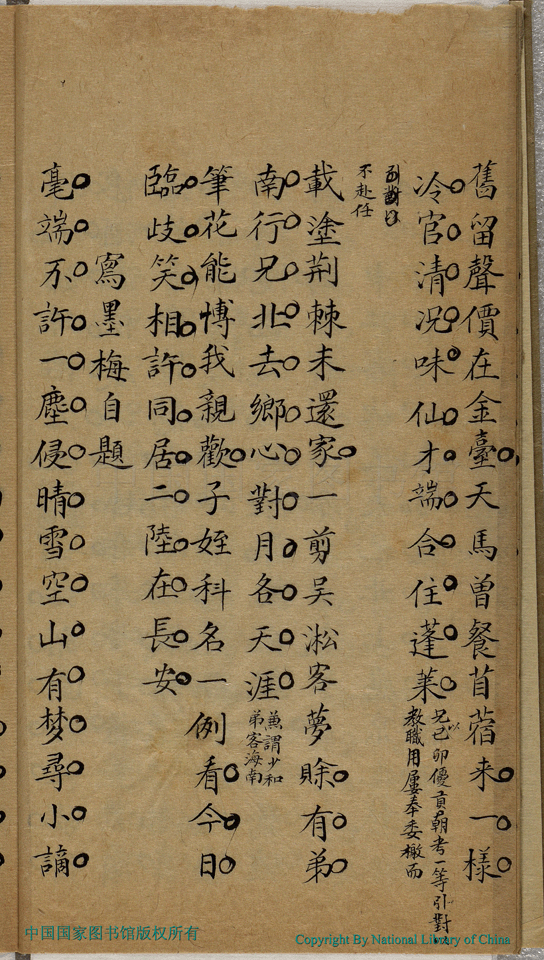 舊留聲價在金臺天馬曾餐苜蓿来一樣
冷官清况味仙才端合住蓬莱
兄以己卯優貢朝考一等引對以
教職用屢奉委檄而
不赴任
載塗荆棘未還家一剪吴淞客夢賒有弟
南行兄北去鄉心對月各天涯
兼謂少和
弟客海南
筆花能愽我親歡子姪科名一例看今日
臨歧笑相許同居二陸在長安
寫墨梅自題
毫端不許一塵侵晴雪空山有梦尋小謫
中国国家图书馆版权所有
Copyright By National Library of China